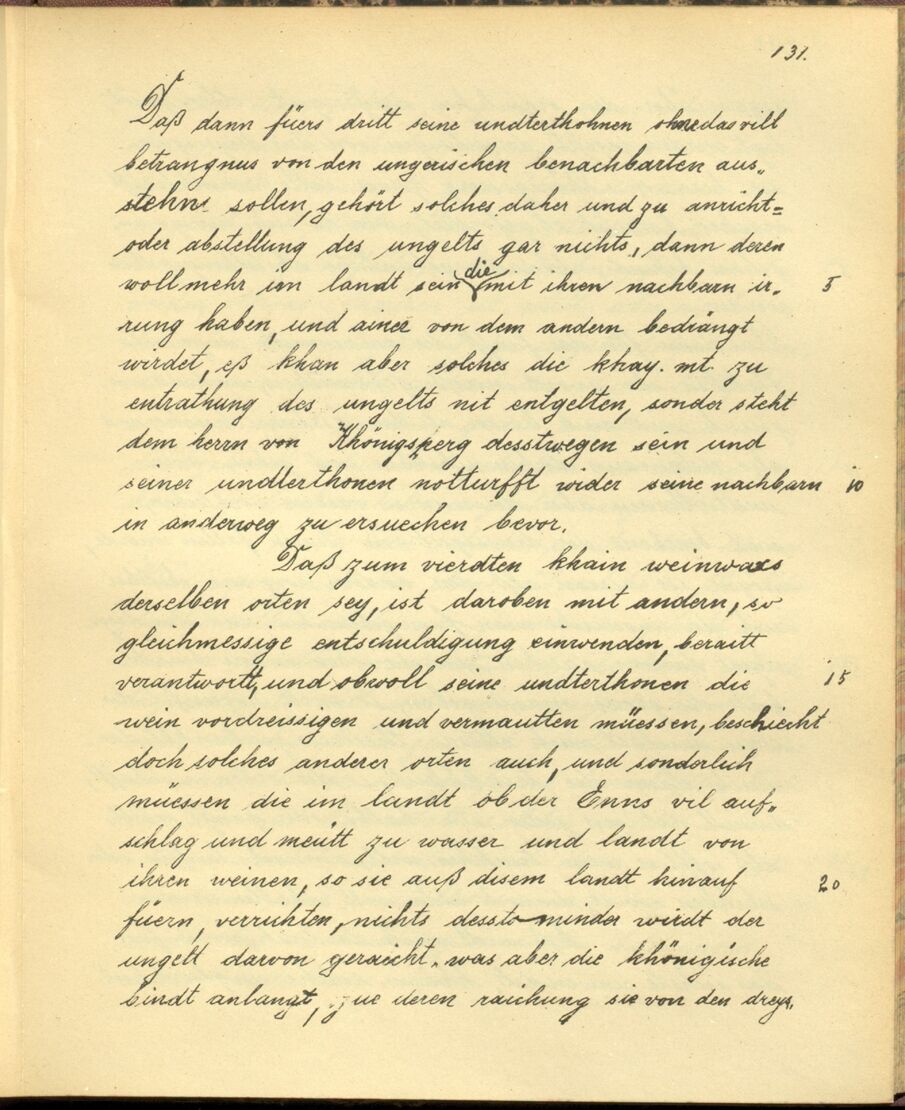 131.
Daß dann füers dritt seine undterthohnen ohnedas vill
betrangnus von den ungerischen benachbarten aus„
stehn sollen, gehört solches daher und zu anricht=
oder abstellung des ungelts gar nichts, dann deren
woll mehr im landt sein die mit ihren nachbarn ir„ 5
rung haben, und ainer von dem andern bedrängt
wirdet, eß khan aber solches die khay. mt. zu
entrathung des ungelts nit entgelten, sonder steht
dem herrn von Khönigsperg desstwegen sein und
seiner undterthonen notturfft wider seine nachbarn 10
in anderweg zu ersuechen bevor.
Daß zum vierdten khain weinwaxs
derselben orten sey, ist daroben mit andern, so
gleichmessige entschuldigung einwenden, beraitt
verantwortt, und obwoll seine undterthonen die 15
wein vordreissigen und vermautten müessen, beschiecht
doch solches anderer orten auch, und sonderlich
müessen die im landt ob der Enns vil auf„
schlag und meütt zu wasser und landt von
ihren weinen, so sie auß disem landt hinauf 20
füern, verrichten, nichts dessto minder wirdt der
ungelt darvon geraicht. was aber die khönigische
bindt anlangt, zue deren raichung sie von den dreys„